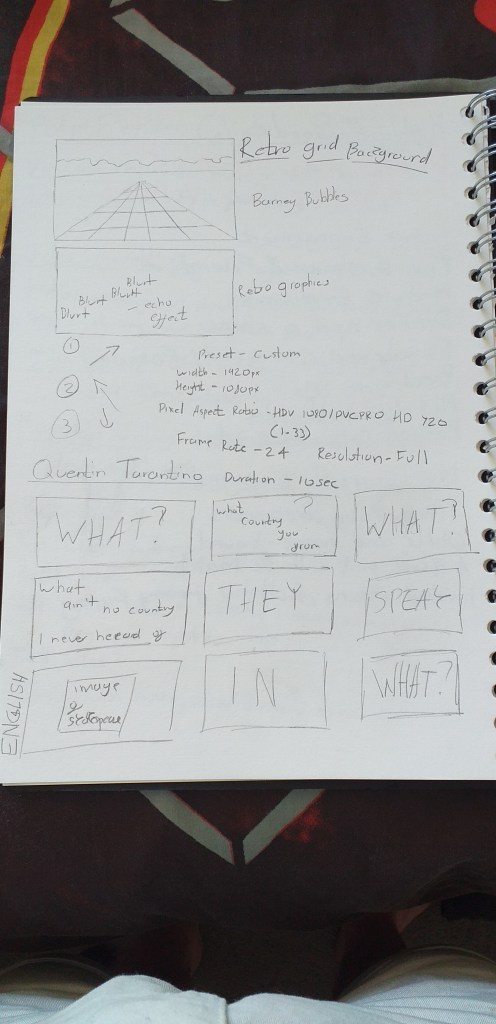 Retro grid Background
Barney Bubbles
Blurt
Blurt
Blurt
Blurt
- echo
effect
Retro graphics
1
2
3
Preset - Custom
Width - 1920px
height - 1080px
Pixel Aspect Ratio - HDV 1080/DVCPRO HD 720
(1.33)
Frame Rate - 24 Resolution - Full
Quentin Tarantino Duration - 10sec
WHAT?
what ?
country
you
from
WHAT?
What
ain't no country
I never heread of
THEY
SPEAK
ENGLISH
image
of
IN
WHAT?